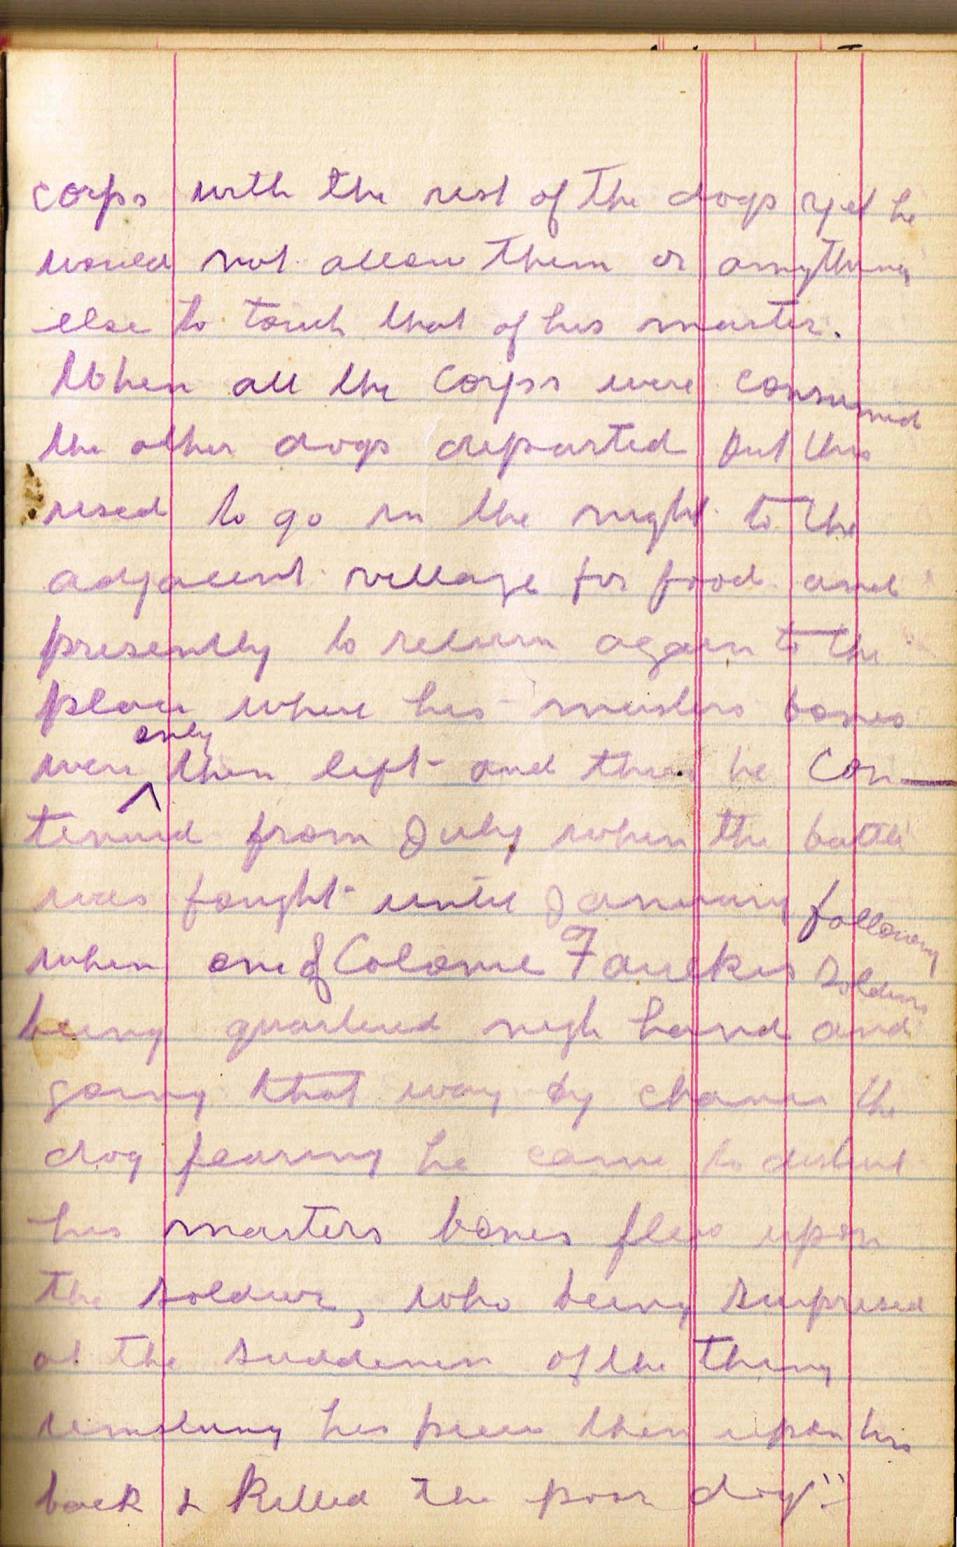 corps with the rest of the dogs yet he
would not allow them or anything
else to touch that of his master.
When all the corps were consumed
the other dogs departed but this
used to go in the night to the
adjacent village for food and
presently to return again to the
place where his masters bones
were only then left and thus he con—
tinued from July when the battle
was fought until January following
when one of Colonel Faucks soldiers
being quartered nigh hand and
going that way by chance the
dog fearing he came to disturb
his masters bones flew upon
the soldier, who being surprised
at the suddenes of the thing
unslung his piece then upon his
back & killed the poor dog"